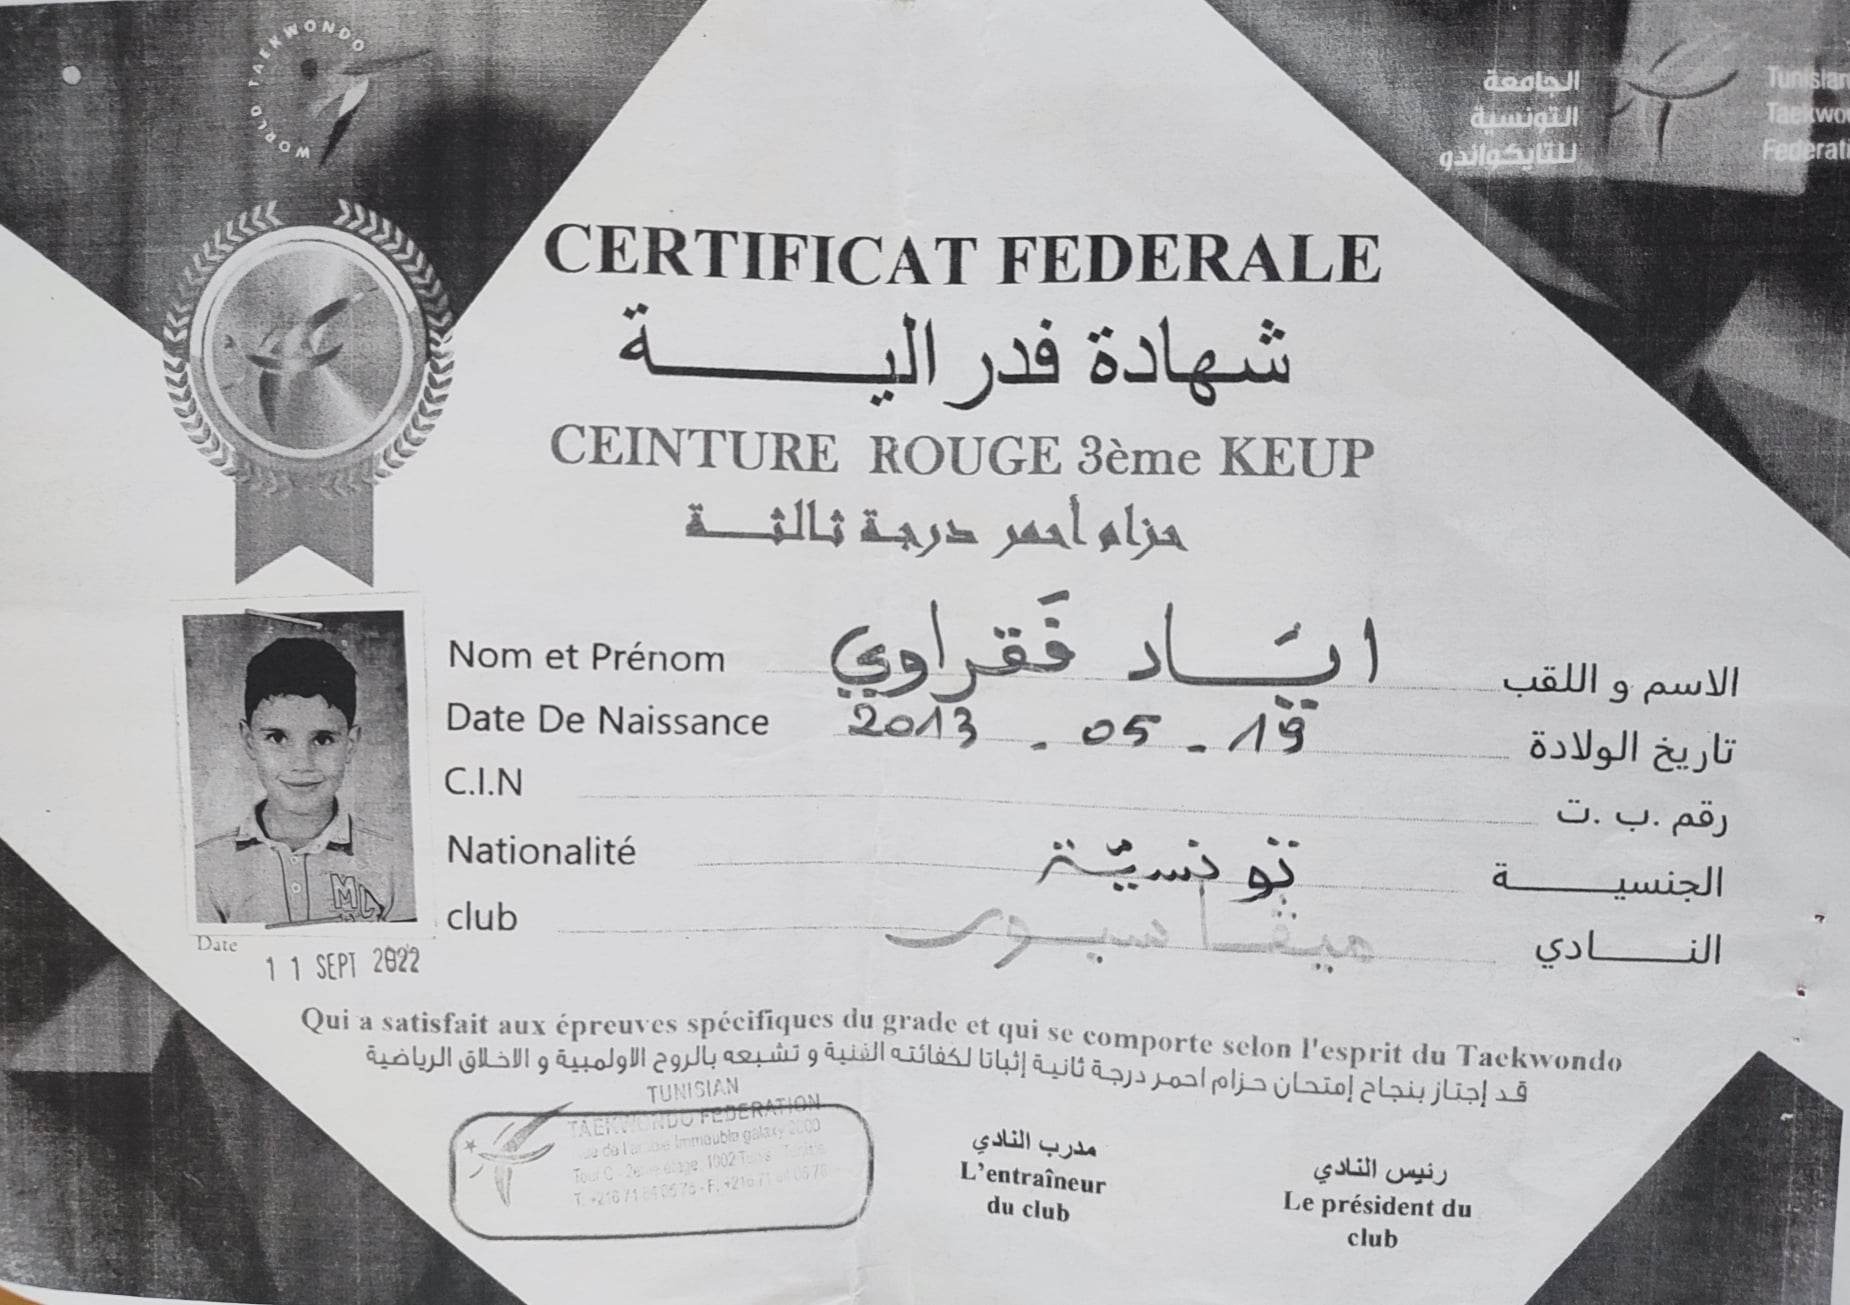 WORLD TAEKWONDO
الجامعة
التونسية
للتايكواندو
Tunisian
Taekwo
Federati
CERTIFICAT FEDERALE
شهادة فدرالية
CEINTURE ROUGE 3ème KEUP
حزام أحمر درجة ثالثة
Nom et Prénom ايَّاد فَقراوي الاسم و اللقب
Date De Naissance 2013 - 05 - 19 تاريخ الولادة
C.I.N رقم .ب .ت
Nationalité تونسيّة الجنسية
club ميڤا سبور النادي
Date
11 SEPT 2022
Qui a satisfait aux épreuves spécifiques du grade et qui se comporte selon l'esprit du Taekwondo
قد إجتاز بنجاح إمتحان حزام احمر درجة ثانية إثباتا لكفائته الفنية و تشبعه بالروح الاولمبية و الاخلاق الرياضية
TUNISIAN
TAEKWONDO FEDERATION
Immeuble galaxy 2000
مدرب النادي
L'entraîneur
du club
رئيس النادي
Le président du
club